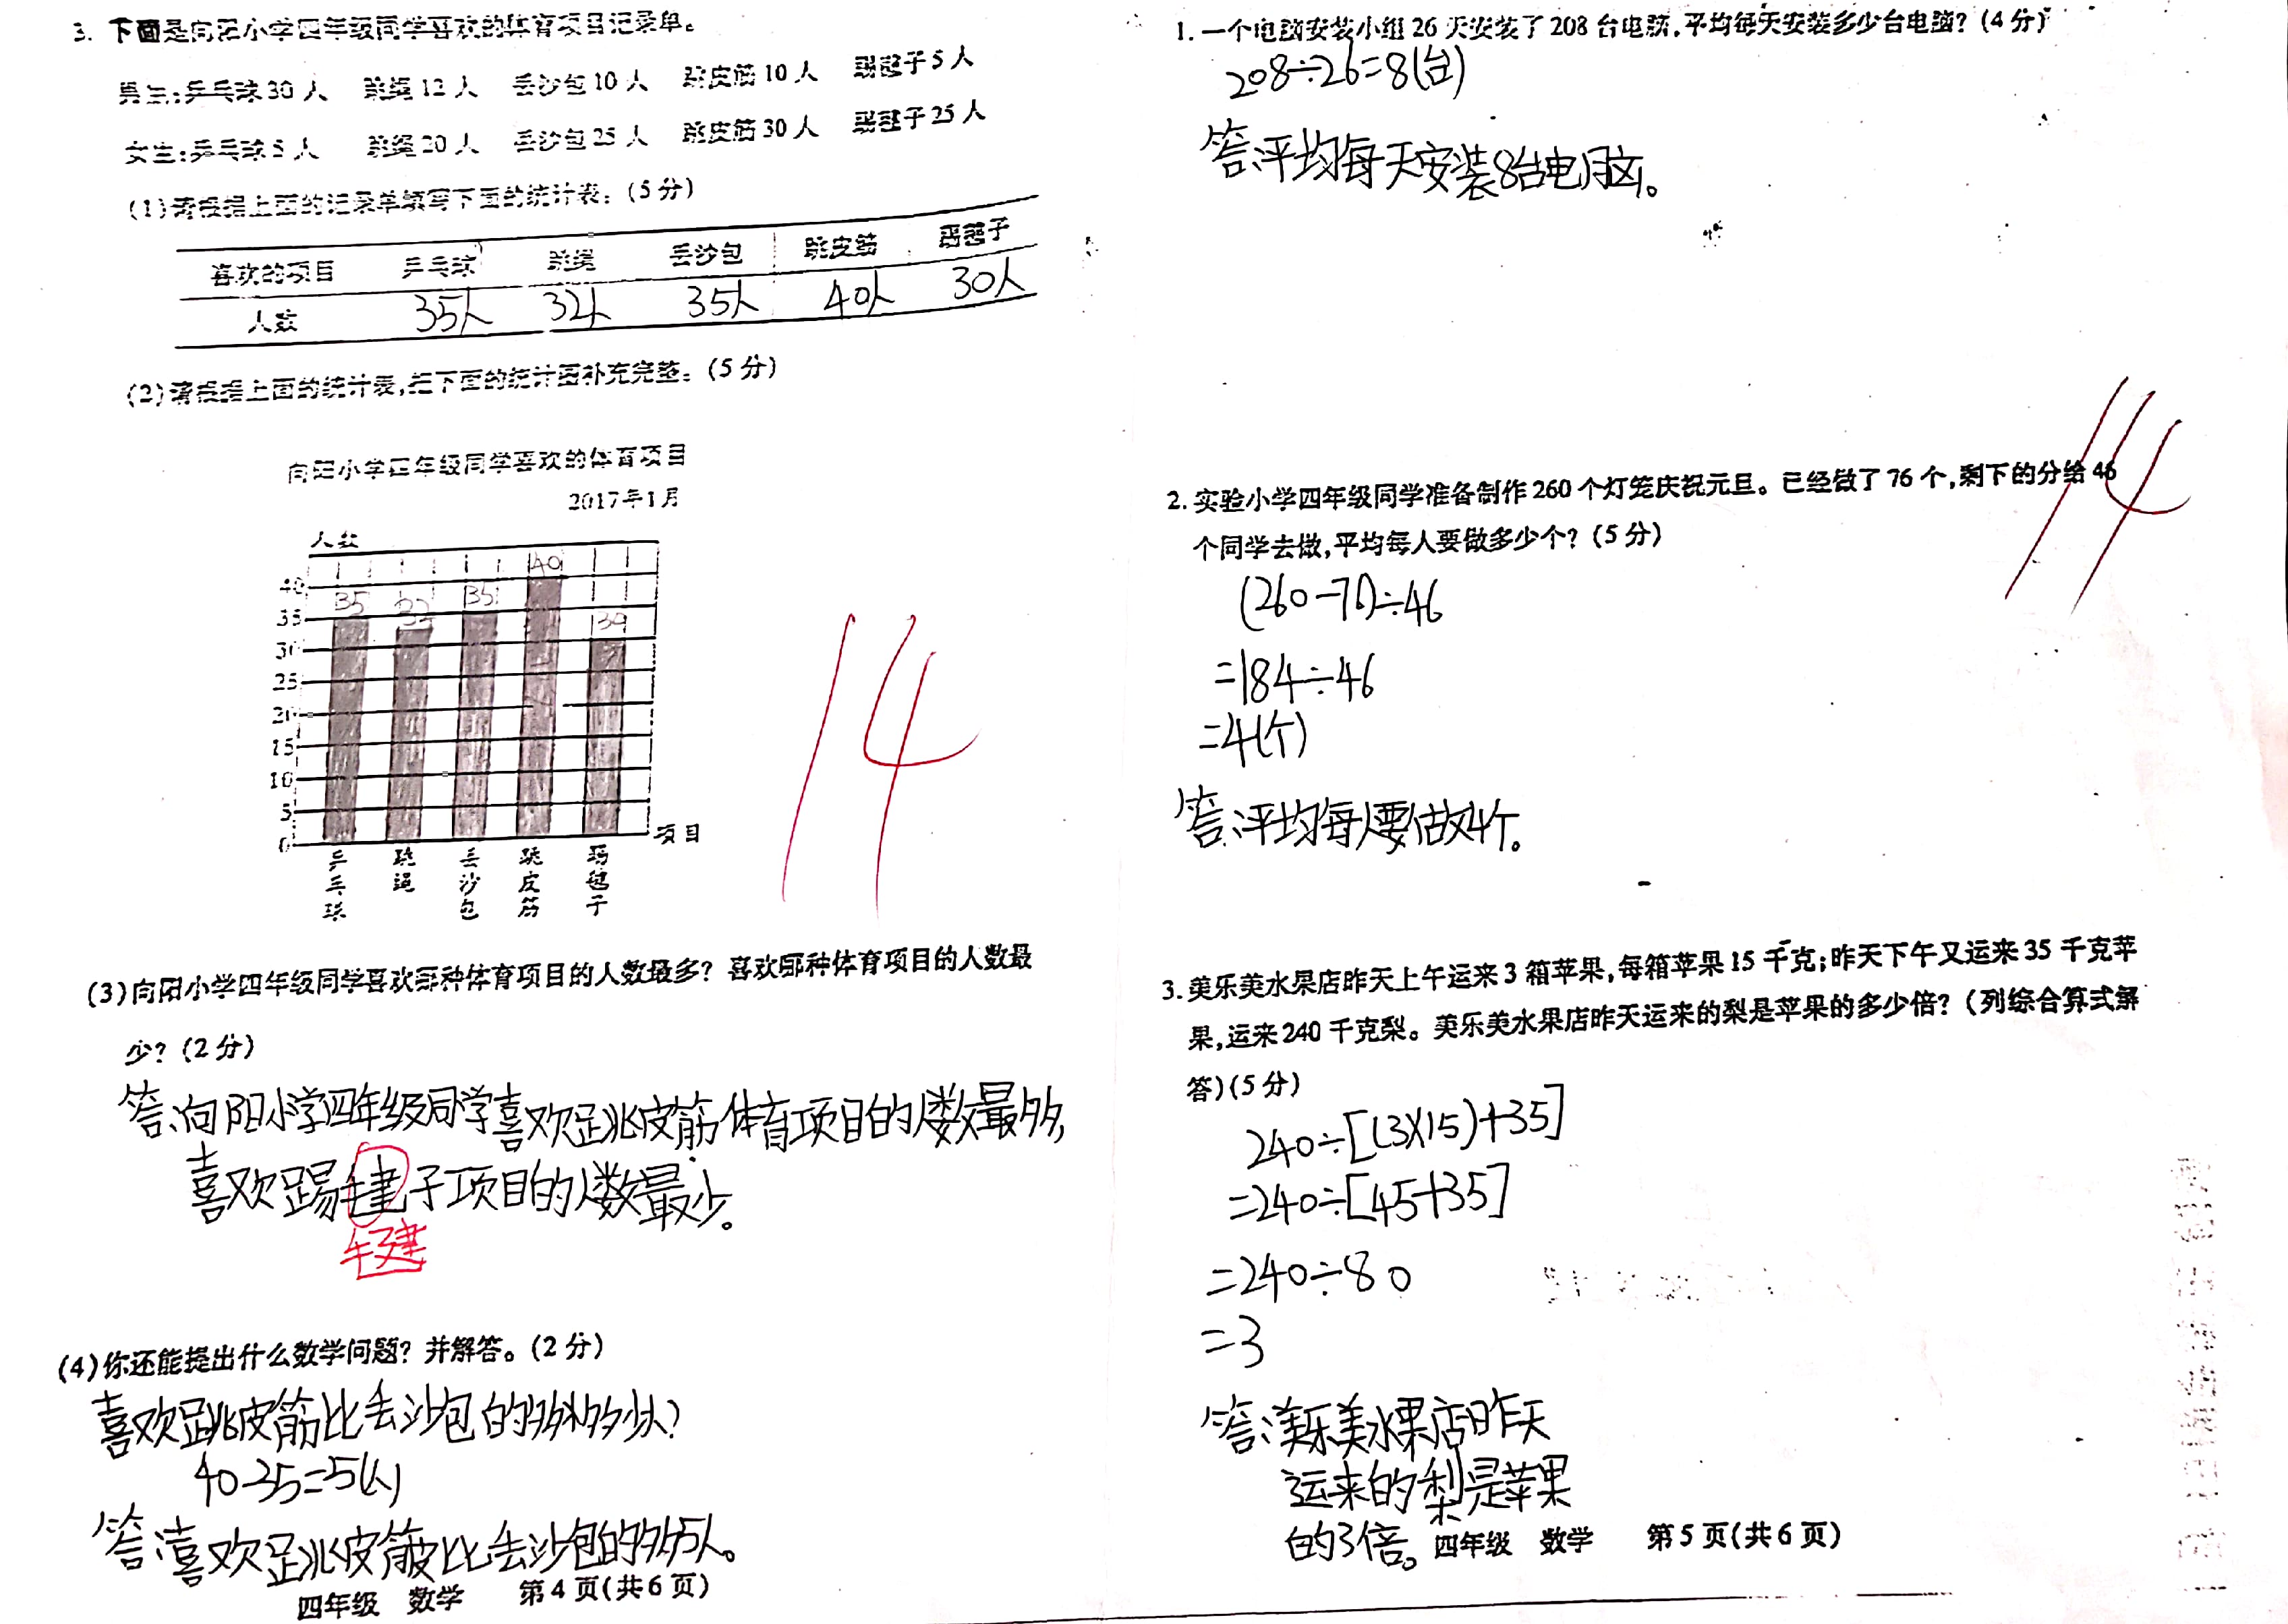 3. 下面是向阳小学四年级同学喜欢的体育项目记录单。
男生:乒乓球30人 跳绳12人 丢沙包10人 跳皮筋10人 踢毽子5人
女生:乒乓球5人 跳绳20人 丢沙包25人 跳皮筋30人 踢毽子25人
(1)请根据上面的记录单填写下面的统计表。(5分)
喜欢的项目 乒乓球 跳绳 丢沙包 跳皮筋 踢毽子
人数 35人 32人 35人 40人 30人
(2)请根据上面的统计表,把下面的统计图补充完整。(5分)
向阳小学四年级同学喜欢的体育项目
2017年1月
人数
40
35
30
25
20
15
10
5
0
35 32 35 40 30
项目
乒乓球 跳绳 丢沙包 跳皮筋 踢毽子
14
(3)向阳小学四年级同学喜欢哪种体育项目的人数最多?喜欢哪种体育项目的人数最
少?(2分)
答:向阳小学四年级同学喜欢跳皮筋体育项目的人数最多,
喜欢踢毽子项目的人数最少。
毽
(4)你还能提出什么数学问题?并解答。(2分)
喜欢跳皮筋比丢沙包的多多少人?
40-35=5(人)
答:喜欢跳皮筋比丢沙包的多5人。
四年级 数学 第4页(共6页)
1.一个电脑安装小组26天安装了208台电脑,平均每天安装多少台电脑?(4分)
208÷26=8(台)
答:平均每天安装8台电脑。
2.实验小学四年级同学准备制作260个灯笼庆祝元旦。已经做了76个,剩下的分给46
个同学去做,平均每人要做多少个?(5分)
(260-76)÷46
=184÷46
=4(个)
答:平均每人要做4个。
14
3.美乐美水果店昨天上午运来3箱苹果,每箱苹果15千克;昨天下午又运来35千克苹
果,运来240千克梨。美乐美水果店昨天运来的梨是苹果的多少倍?(列综合算式解
答)(5分)
240÷[(3×15)+35]
=240÷[45+35]
=240÷80
=3
答:美乐美水果店昨天
运来的梨是苹果
的3倍。
四年级 数学 第5页(共6页)